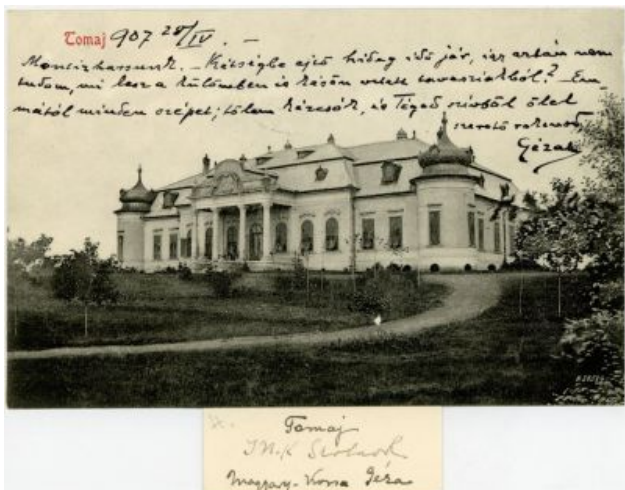 Tomaj 907 28/IV. —
Kétségbe ejtő hideg idő jár, így aztán nem
tudom, mi lesz a különben is későn vetett tavasziakból? — Em-
mától minden szépet; tőlem kézcsók, és Téged szívből ölel
szerető
Géza
Tomaj
Magyary-Kossa Géza